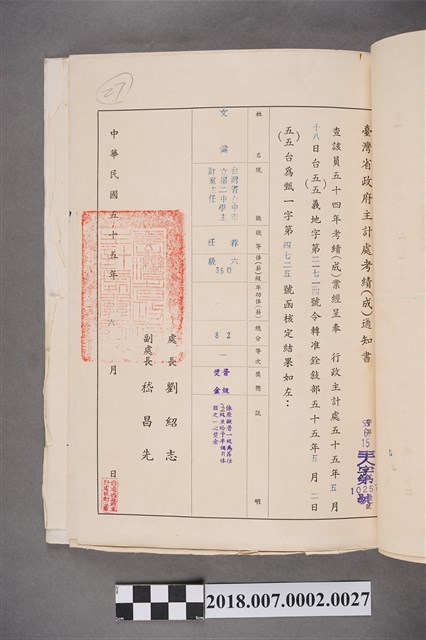 臺灣省政府主計處考績(成)通知書
查該員五十四年考績(成)業經呈奉 行政主計處五十五年五月
十八日台(五五)義地字第二七一四號令轉准銓敘部五十五年五月二日
(五五)台為甄一字第四七二五號函核定結果如左:
姓名
現職
職等
俸(薪)級
年功俸(薪)
總分
等次
獎懲
說明
台灣省台中市
立第二中學主
計室主任
荐任
六級
350
82
一
晉級
獎金
處長 劉紹志
副處長 嵇昌先
中華民國五十五年六月 日
27
2018.007.0002.0027